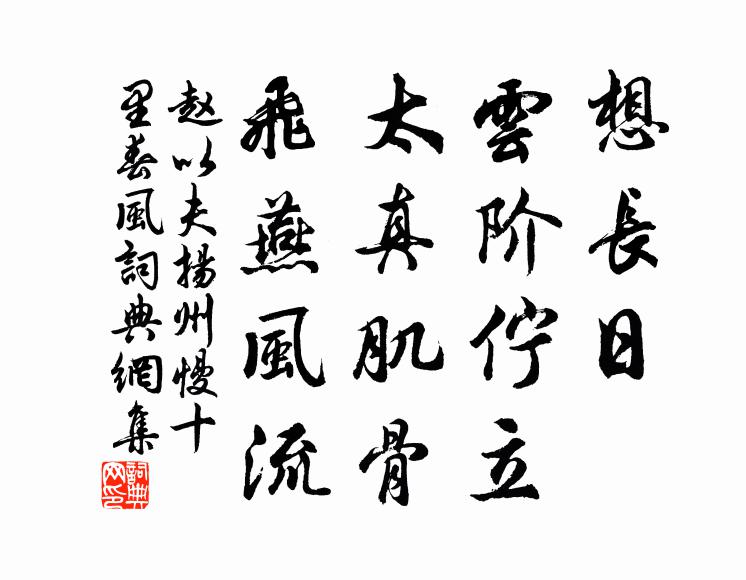 想長日
雲阶佇立
太真肌骨
飛燕風流
赵以夫揚州慢十
里春風詞典網集
詞典网印